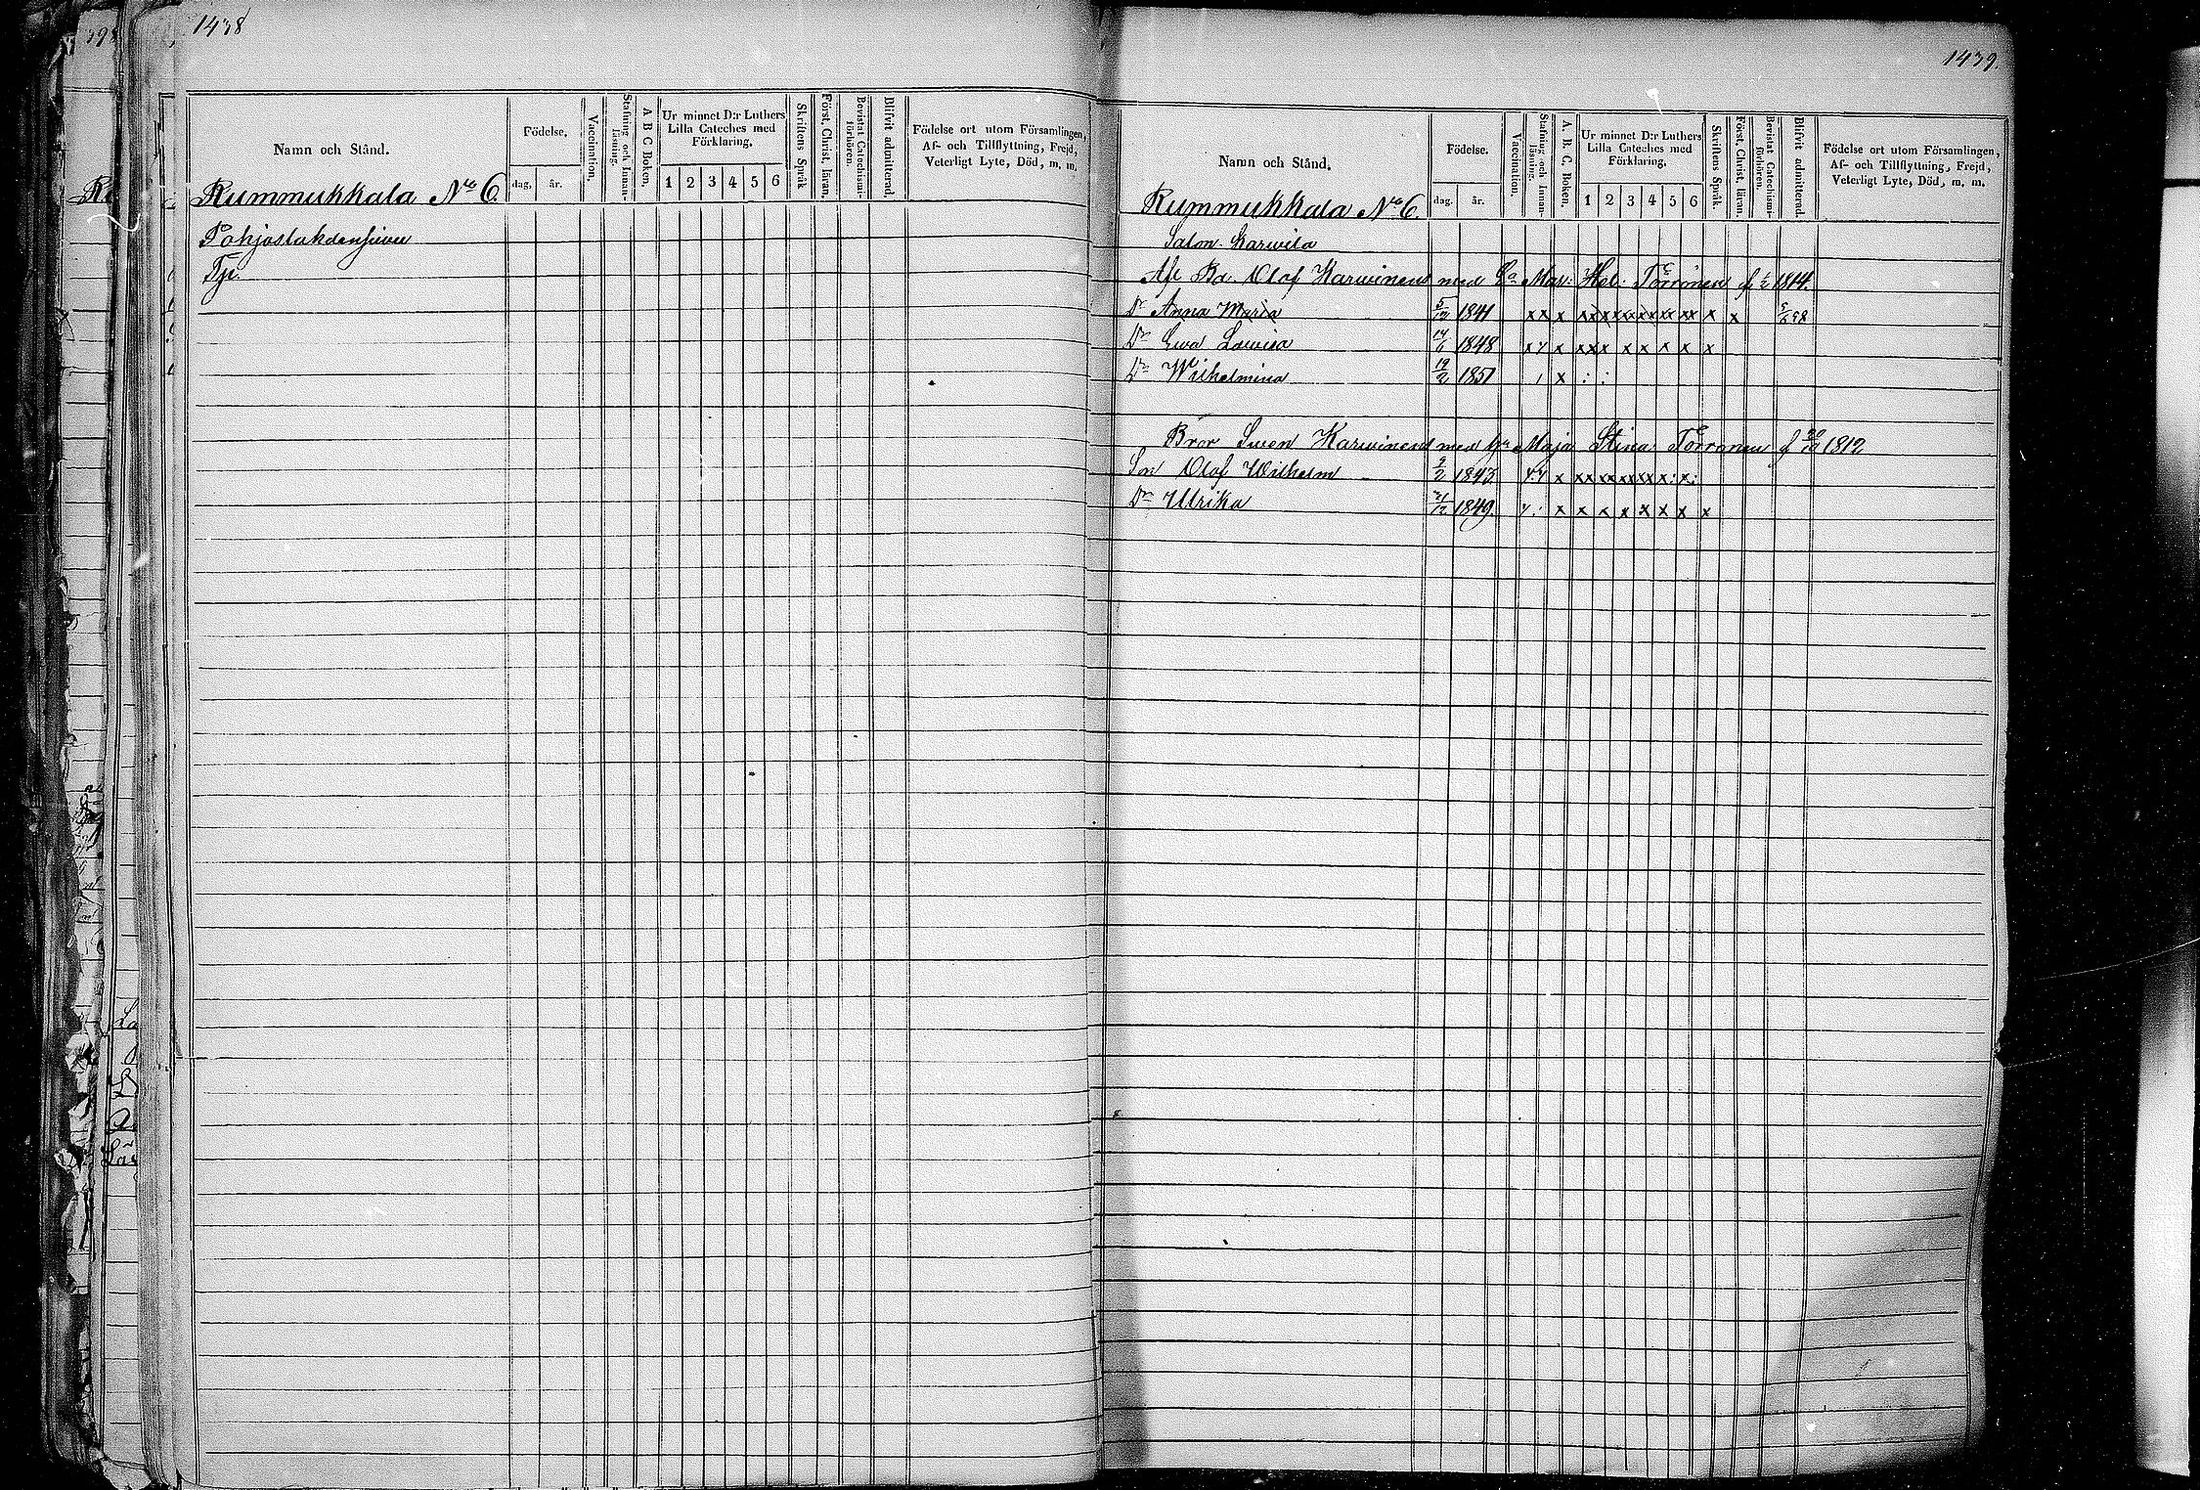 1438
Namn och Stånd.
Födelse,
dag, år.
Vaccination.
Stafning och Innan-läsning.
A B C Boken.
Ur minnet D:r Luthers Lilla Cateches med Förklaring,
1 2 3 4 5 6
Skriftens Språk
Först. Christ. läran.
Bevistat Catechismi-förhören.
Blifvit admitterad.
Födelse ort utom Församlingen,
Af- och Tillflyttning, Frejd,
Veterligt Lyte, Död, m, m.
Rummukkala No 6.
Tji.
1439.
Namn och Stånd.
Födelse.
dag. år.
Vaccination.
Stafning och Innan-läsning.
A. B. C. Boken.
Ur minnet D:r Luthers Lilla Cateches med Förklaring,
1 2 3 4 5 6
Skriftens Språk.
Först. Christ. läran.
Bevistat Catechismi-förhören.
Blifvit admitterad.
Födelse ort utom Församlingen,
Af- och Tillflyttning, Frejd,
Veterligt Lyte, Död, m. m.
Rummukkala No 6.
Salon Karwila
Afl Bd. Olof Karwinens med Ea Mar: Hel: Törrönen f 1/2 1814.
Dr Anna Maria 5/12 1841 x x x xx xx xx xx xx xx x x
Dr Ewa Lowisa 14/6 1848 x y x xx x x x x x x
Dr Wilhelmina 19/2 1851 , x : :
Bror Swen Karwinens med Ea Maja Stina Törrönen f 20/10 1812
Son Olof Wilhelm 9/2 1843
Dr Ulrika 21/12 1849 y : x x x x x x x x